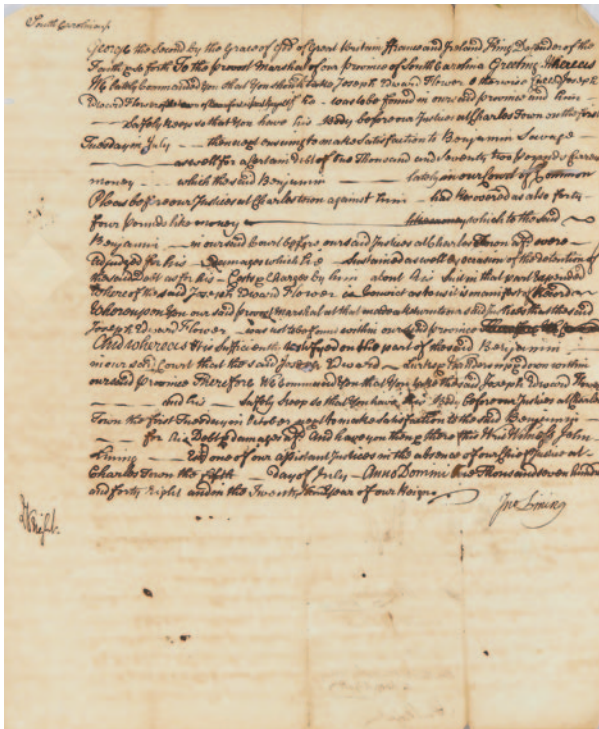 South Carolina
George the Second by the Grace of God of Great Britain France and Ireland King Defender of the
Faith &c forth To the provost Marshal of our province of South Carolina Greeting Whereas
We lately Commanded You that You should take Joseph Edward Flower Otherwise Joseph
Edward Flower of he was to be found in our said province and him
Safely keep so that You have his Body before our Justices at Charles Town on the first
Tuesday in July then next ensuing to make Satisfaction to Benjamin Savage
as well for a Certain debt of two Thousand and Seventy two pounds Curre
money which the said Benjamin lately in our Court of Common
Pleas before our Justices at Charlestown against him had Recovered as also forty
four Pounds like money which to the said
Benjamin in our said Court before our said Justices at Charles Town were
adjudged for his Damages which he Sustained as well by occasion of the detention of
the said Debt as for his Costs & Charges by him about his Suit in that part Expended
Whereof the said Joseph Edward Flower is Convict as to us is manifest of Record
Whereupon You our said provost Marshal at that made a return to our said Justices that the said
Joseph Edward Flower was not to be found within our said province
And whereas it is Sufficiently testifyed on the part of the said Benjamin
in our said Court that the said Joseph Edward Lurks & Wanders up & down within
our said province Therefore We Command You that You take the said Joseph Edward Flower
and his Safely keep so that You have his Body before our Justices at Charles
Town the first Tuesday in October next to make Satisfaction to the said Benjamin
for his Debt & damages afd And have you then & there this Writ Witness John
Lining Esq one of our assistant Justices in the absence of our Chief Justice at
Charles Town the fifth day of July Anno Domini One Thousand seven hund
and forty Eight and in the Twenty year of our Reign
Jno Lining
Wright